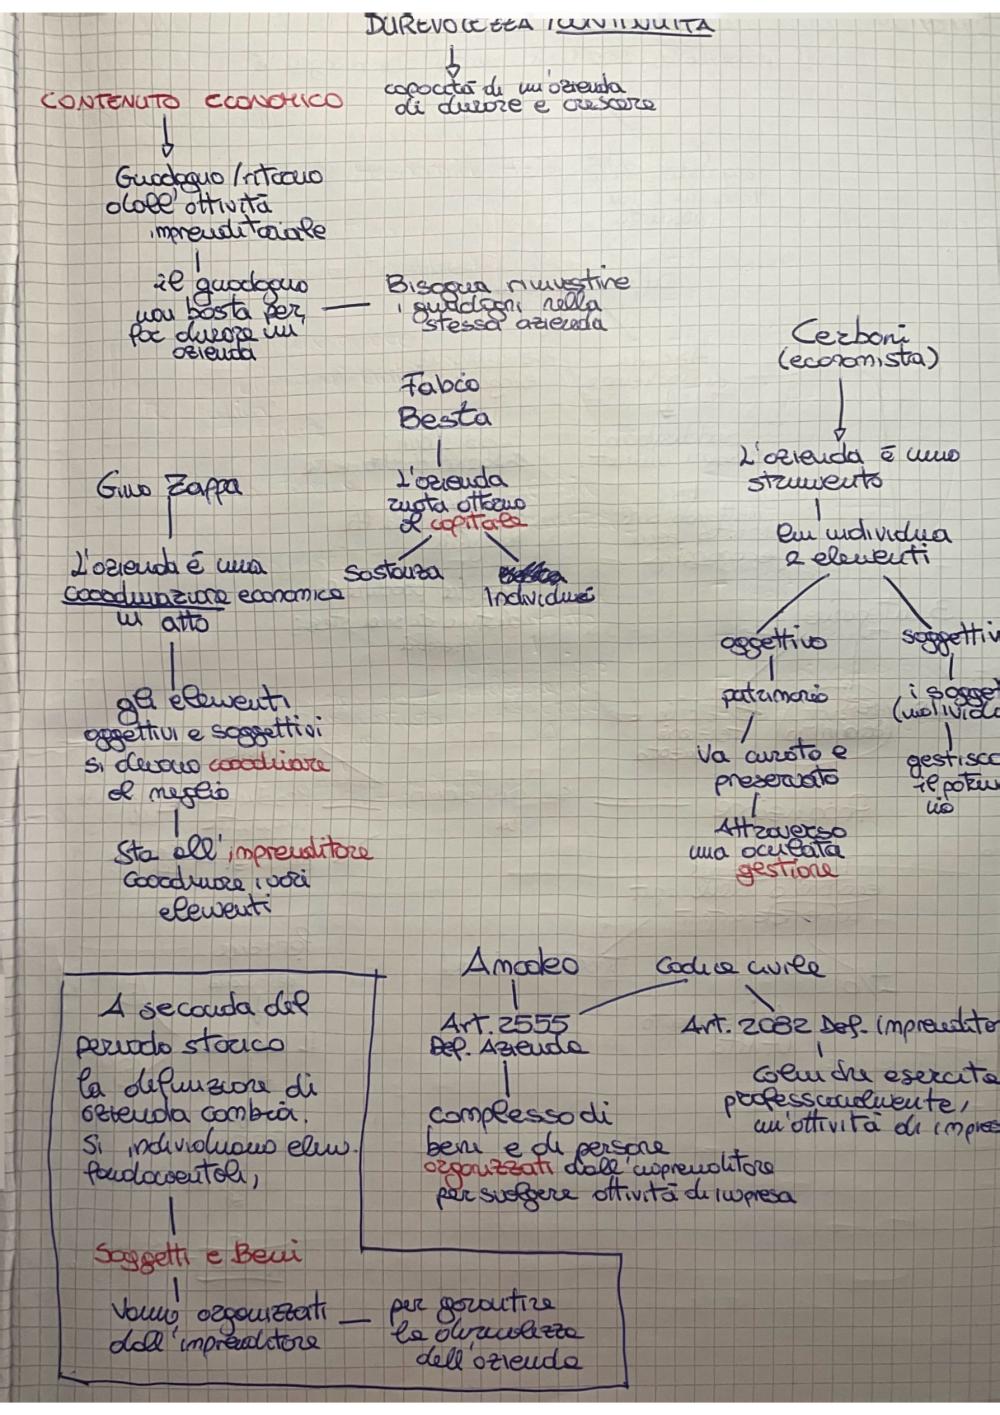 DUREVOLEZZA / CONTINUITÀ
capacità di un'azienda
di durare e crescere
CONTENUTO ECONOMICO
Guadagno / ritorno
dall'attività
imprenditoriale
il guadagno
non basta per
far durare un'
azienda
Bisogna rinvestire
i guadagni nella
stessa azienda
Cerboni
(economista)
L'azienda è uno
strumento
Lui individua
2 elementi
oggettivo
patrimonio
Va curato e
preservato
Attraverso
una oculata
gestione
soggettiv
i sogget
(individu
gestisco
il patrim
nio
Fabio
Besta
L'azienda
ruota attorno
al capitale
Sostanza
Individui
Gino Zappa
L'azienda è una
coordinazione economica
in atto
gli elementi
oggettivi e soggettivi
si devono coordinare
al meglio
Sta all'imprenditore
coordinare i vari
elementi
Amodeo
Codice civile
Art. 2555
Def. Azienda
complesso di
beni e di persone
organizzati dall'imprenditore
per svolgere attività di impresa
Art. 2082 Def. imprenditor
colui che esercita
professionalmente,
un'attività di impres
A seconda del
periodo storico
la definizione di
azienda cambia.
Si individuano elem.
fondamentali,
Soggetti e Beni
Vanno organizzati
dall'imprenditore
per garantire
la durevolezza
dell'azienda